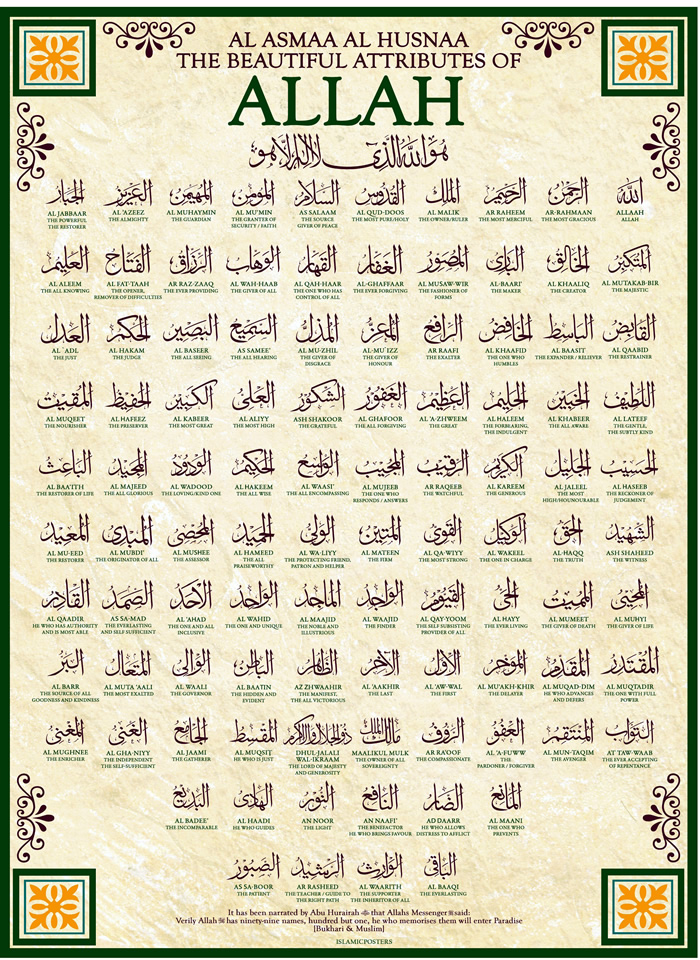 AL ASMAA AL HUSNAA
THE BEAUTIFUL ATTRIBUTES OF
ALLAH
هو الله الذي لا اله الا هو
الله
ALLAAH
ALLAH
الرحمن
AR-RAHMAAN
THE MOST GRACIOUS
الرحيم
AR RAHEEM
THE MOST MERCIFUL
الملك
AL MALIK
THE OWNER/RULER
القدوس
AL QUD-DOOS
THE MOST PURE/HOLY
السلام
AS SALAAM
THE SOURCE
GIVER OF PEACE
المؤمن
AL MU'MIN
THE GRANTER OF
SECURITY / FAITH
المهيمن
AL MUHAYMIN
THE GUARDIAN
العزيز
AL 'AZEEZ
THE ALMIGHTY
الجبار
AL JABBAAR
THE POWERFUL
THE RESTORER
المتكبر
AL MUTAKAB-BIR
THE MAJESTIC
الخالق
AL KHAALIQ
THE CREATOR
البارئ
AL-BAARI'
THE MAKER
المصور
AL MUSAW-WIR
THE FASHIONER OF
FORMS
الغفار
AL-GHAFFAAR
THE EVER FORGIVING
القهار
AL QAH-HAAR
THE ONE WHO HAS
CONTROL OF ALL
الوهاب
AL WAH-HAAB
THE GIVER OF ALL
الرزاق
AR RAZ-ZAAQ
THE EVER PROVIDING
الفتاح
AL FAT-TAAH
THE OPENER,
REMOVER OF DIFFICULTIES
العليم
AL ALEEM
THE ALL KNOWING
القابض
AL QAABID
THE RESTRAINER
الباسط
AL BAASIT
THE EXPANDER / RELIEVER
الخافض
AL KHAAFID
THE ONE WHO
HUMBLES
الرافع
AR RAAFI
THE EXALTER
المعز
AL-MU'IZZ
THE GIVER OF
HONOUR
المذل
AL MU-ZHIL
THE GIVER OF
DISGRACE
السميع
AS SAMEE'
THE ALL HEARING
البصير
AL BASEER
THE ALL SEEING
الحكم
AL HAKAM
THE JUDGE
العدل
AL 'ADL
THE JUST
اللطيف
AL LATEEF
THE GENTLE,
THE SUBTLY KIND
الخبير
AL KHABEER
THE ALL AWARE
الحليم
AL HALEEM
THE FORBEARING,
THE INDULGENT
العظيم
AL 'A-ZHWEEM
THE GREAT
الغفور
AL GHAFOOR
THE ALL FORGIVING
الشكور
ASH SHAKOOR
THE GRATEFUL
العلي
AL ALIYY
THE MOST HIGH
الكبير
AL KABEER
THE MOST GREAT
الحفيظ
AL HAFEEZ
THE PRESERVER
المقيت
AL MUQEET
THE NOURISHER
الحسيب
AL HASEEB
THE RECKONER OF
JUDGEMENT
الجليل
AL JALEEL
THE MOST
HIGH/HOUNOURABLE
الكريم
AL KAREEM
THE GENEROUS
الرقيب
AR RAQEEB
THE WATCHFUL
المجيب
AL MUJEEB
THE ONE WHO
RESPONDS / ANSWERS
الواسع
AL WAASI'
THE ALL ENCOMPASSING
الحكيم
AL HAKEEM
THE ALL WISE
الودود
AL WADOOD
THE LOVING/KIND ONE
المجيد
AL MAJEED
THE ALL GLORIOUS
الباعث
AL BAA'ITH
THE RESTORER OF LIFE
الشهيد
ASH SHAHEED
THE WITNESS
الحق
AL-HAQQ
THE TRUTH
الوكيل
AL WAKEEL
THE ONE IN CHARGE
القوي
AL QA-WIYY
THE MOST STRONG
المتين
AL MATEEN
THE FIRM
الولي
AL WA-LIYY
THE PROTECTING FRIEND,
PATRON AND HELPER
الحميد
AL HAMEED
THE ALL
PRAISEWORTHY
المحصي
AL MUSHEE
THE ASSESSOR
المبدئ
AL MUBDI'
THE ORIGINATOR OF ALL
المعيد
AL MU-EED
THE RESTORER
المحيي
AL MUHYI
THE GIVER OF LIFE
المميت
AL MUMEET
THE GIVER OF DEATH
الحي
AL HAYY
THE EVER LIVING
القيوم
AL QAY-YOOM
THE SELF SUBSISTING
PROVIDER OF ALL
الواجد
AL WAAJID
THE FINDER
الماجد
AL MAAJID
THE NOBLE AND
ILLUSTRIOUS
الواحد
AL WAHID
THE ONE AND UNIQUE
الاحد
AL 'AHAD
THE ONE AND ALL
INCLUSIVE
الصمد
AS SA-MAD
THE EVERLASTING
AND SELF SUFFICIENT
القادر
AL QAADIR
HE WHO HAS AUTHORITY
AND IS MOST ABLE
المقتدر
AL MUQTADIR
THE ONE WITH FULL
POWER
المقدم
AL MUQAD-DIM
HE WHO ADVANCES
AND DEFERS
المؤخر
AL MU'AKH-KHIR
THE DELAYER
الاول
AL 'AW-WAL
THE FIRST
الآخر
AL 'AAKHIR
THE LAST
الظاهر
AZ ZHWAAHIR
THE MANIFEST,
THE ALL VICTORIOUS
الباطن
AL BAATIN
THE HIDDEN AND
EVIDENT
الوالي
AL WAALI
THE GOVERNOR
المتعال
AL MUTA 'AALI
THE MOST EXALTED
البر
AL BARR
THE SOURCE OF ALL
GOODNESS AND KINDNESS
التواب
AT TAW-WAAB
THE EVER ACCEPTING
OF REPENTANCE
المنتقم
AL MUN-TAQIM
THE AVENGER
العفو
AL 'A-FUWW
THE
PARDONER / FORGIVER
الرؤف
AR RA'OOF
THE COMPASSIONATE
مالك الملك
MAALIKUL MULK
THE OWNER OF ALL
SOVEREIGNTY
ذو الجلال والاكرام
DHUL-JALALI
WAL-IKRAAM
THE LORD OF MAJESTY
AND GENEROSITY
المقسط
AL MUQSIT
HE WHO IS JUST
الجامع
AL JAAMI
THE GATHERER
الغني
AL GHA-NIYY
THE INDEPENDENT
THE SELF-SUFFICIENT
المغني
AL MUGHNEE
THE ENRICHER
المانع
AL MAANI
THE ONE WHO
PREVENTS
الضار
AD DAARR
HE WHO ALLOWS
DISTRESS TO AFFLICT
النافع
AN NAAFI'
THE BENEFACTOR
HE WHO BRINGS FAVOUR
النور
AN NOOR
THE LIGHT
الهادي
AL HAADI
HE WHO GUIDES
البديع
AL BADEE'
THE INCOMPARABLE
الباقي
AL BAAQI
THE EVERLASTING
الوارث
AL WAARITH
THE SUPPORTER
THE INHERITOR OF ALL
الرشيد
AR RASHEED
THE TEACHER / GUIDE TO
THE RIGHT PATH
الصبور
AS SA-BOOR
THE PATIENT
It has been narrated by Abu Hurairah that Allahs Messenger ﷺ said:
Verily Allah has ninety-nine names, hundred but one, he who memorises them will enter Paradise
[Bukhari & Muslim]
ISLAMICPOSTERS